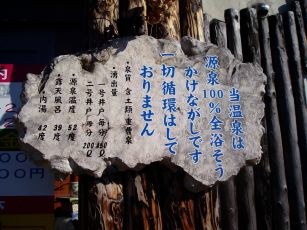 当温泉は
源泉100%全浴そう
100%かけながしです
一切循環はして
おりません
・泉質 含土類重曹泉
・湧出量
一号井戸毎分350ℓ
二号井戸毎分200ℓ
・源泉温度 52度
・露天風呂 39度
・内湯 42度
00円